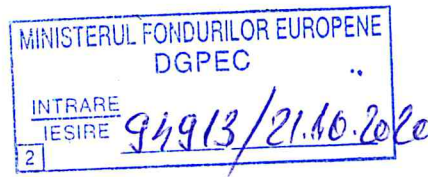 MINISTERUL FONDURILOR EUROPENE
DGPEC
INTRARE
IEȘIRE 94913/21.10.2020
2